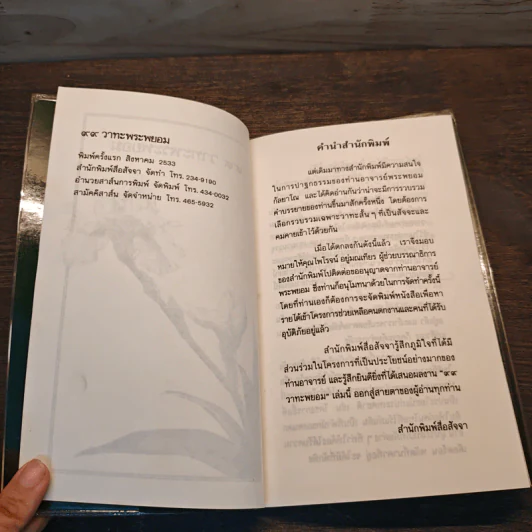 ๙๙ วาทะพระพยอม
พิมพ์ครั้งแรก สิงหาคม 2533
สำนักพิมพ์สื่อสัจจา จัดทำ โทร. 234-9190
อำนวยสาส์นการพิมพ์ จัดพิมพ์ โทร. 434-0032
สามัคคีสาส์น จัดจำหน่าย โทร. 465-5932
คำนำสำนักพิมพ์
แต่เดิมมาทางสำนักพิมพ์มีความสนใจ
ในการปาฐกธรรมของท่านอาจารย์พระพยอม
กัลยาโณ และได้คิดอ่านกันว่าน่าจะมีการรวบรวม
คำบรรยายของท่านขึ้นมาสักครั้งหนึ่ง โดยต้องการ
เลือกรวบรวมเฉพาะวาทะสั้น ๆ ที่เป็นสัจจะและ
คมคายเข้าไว้ด้วยกัน
เมื่อได้ตกลงกันดังนี้แล้ว เราจึงมอบ
หมายให้คุณไพโรจน์ อยู่มณเฑียร ผู้ช่วยบรรณาธิการ
ของสำนักพิมพ์ไปติดต่อขออนุญาตจากท่านอาจารย์
พระพยอม ซึ่งท่านก็อนุโมทนาด้วยในการจัดทำครั้งนี้
โดยที่ท่านเองก็ต้องการจะจัดพิมพ์หนังสือเพื่อหา
รายได้เข้าโครงการช่วยเหลือคนตกงานและคนที่ได้รับ
อุบัติภัยอยู่แล้ว
สำนักพิมพ์สื่อสัจจารู้สึกภูมิใจที่ได้มี
ส่วนร่วมในโครงการที่เป็นประโยชน์อย่างมากของ
ท่านอาจารย์ และรู้สึกยินดียิ่งที่ได้เสนอผลงาน "๙๙
วาทะพระพยอม" เล่มนี้ ออกสู่สายตาของผู้อ่านทุกท่าน
สำนักพิมพ์สื่อสัจจา